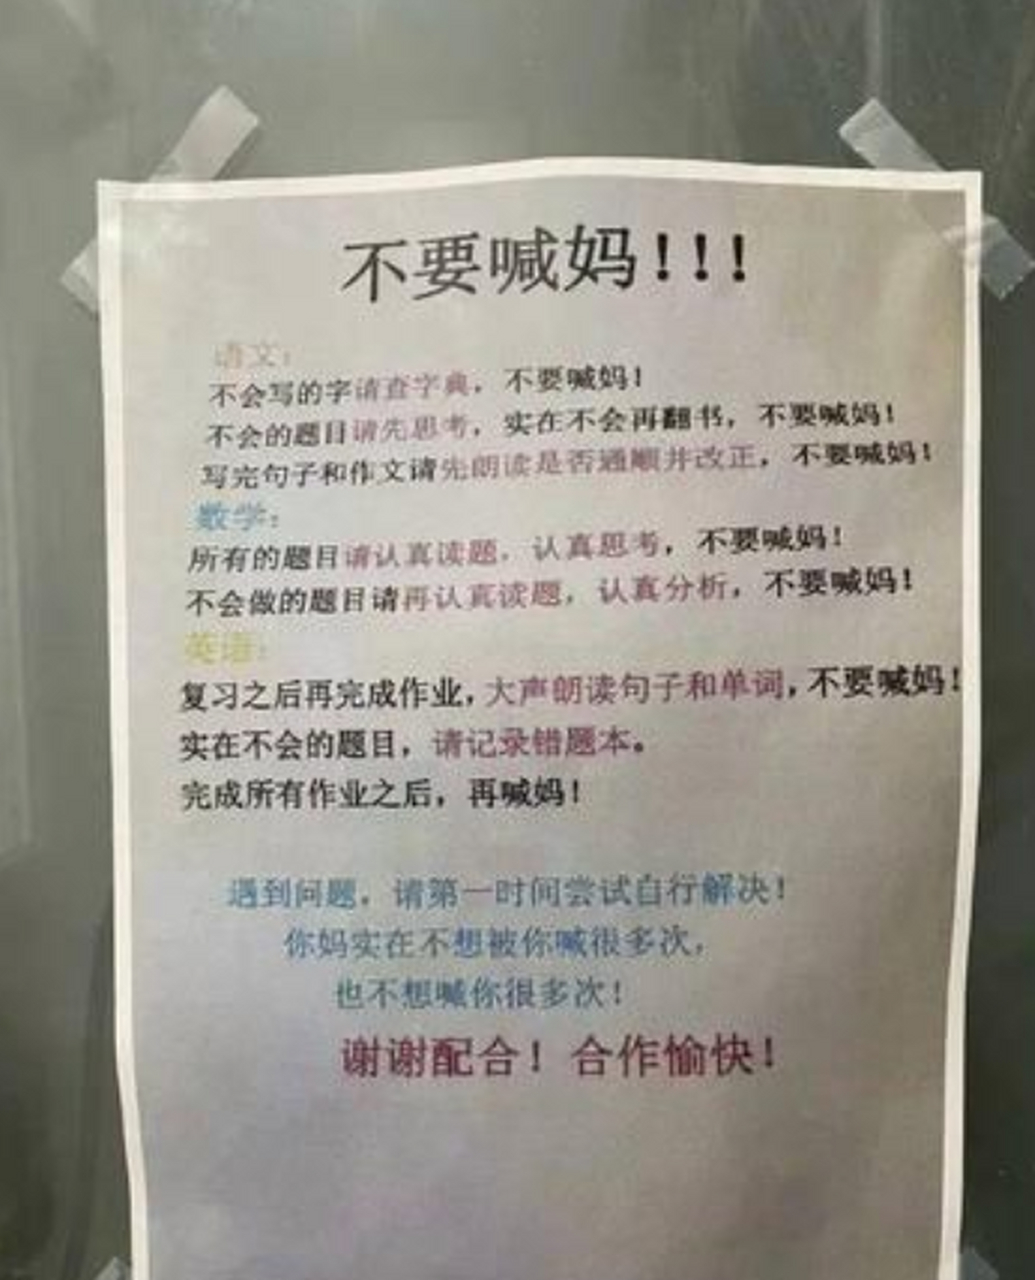 不要喊妈!!!
语文:
不会写的字请查字典, 不要喊妈!
不会的题目请先思考, 实在不会再翻书, 不要喊妈!
写完句子和作文请先朗读是否通顺并改正, 不要喊妈!
数学:
所有的题目请认真读题, 认真思考, 不要喊妈!
不会做的题目请再认真读题, 认真分析, 不要喊妈!
英语:
复习之后再完成作业,大声朗读句子和单词,不要喊妈!
实在不会的题目, 请记录错题本。
完成所有作业之后, 再喊妈!
遇到问题, 请第一时间尝试自行解决!
你妈实在不想被你喊很多次,
也不想喊你很多次!
谢谢配合! 合作愉快!